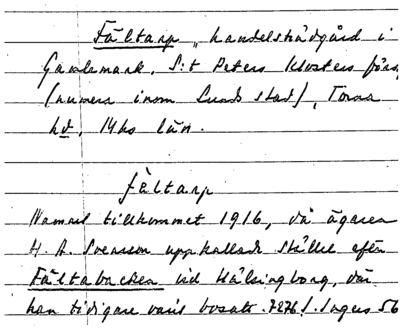 Fältarp, handelsträdgård i
Gamlemark, S:t Peters Klosters förs.
(numera inom Lunds stad), Torna
hd, Mhs län.
fältarp
Namnet tillkommet 1916, då ägaren
H. A. Svensson uppkallade stället efter
Fältabacken vid Hälsingborg, där
han tidigare varit bosatt. Ingers 56